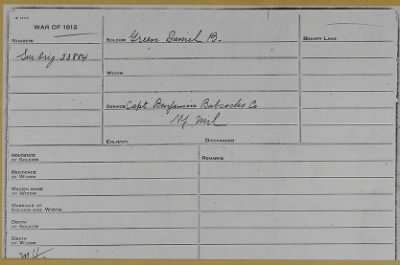 WAR OF 1812
NUMBER
Sur. Orig. 23884
SOLDIER Green Daniel B.
BOUNTY LAND
WIDOW
SERVICE Capt Benjamin Babcocks Co
NY Mil
ENLISTED
DISCHARGED
RESIDENCE
OF SOLDIER
REMARKS
RESIDENCE
OF WIDOW
MAIDEN NAME
OF WIDOW
MARRIAGE OF
SOLDIER AND WIDOW
DEATH
OF SOLDIER
DEATH
OF WIDOW